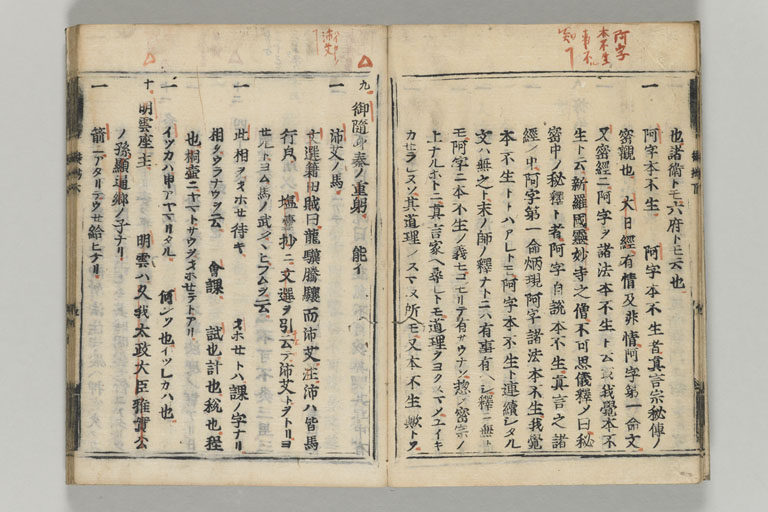 也諸衛トモ六府トモ云也
一 阿字本不生 阿字本不生者真言宗秘傳ノ
密觀也 大日經有情及非情阿字第一命文
又密經ニ阿字ヲ諸法本不生トム或我覺本不
生ト云新羅國靈妙寺之僧不可思儀釋メ曰秘
密中ノ秘釋ト者阿字自説本不生真言之諸
經ノ中阿字第一命炳現阿字諸法本不生我覺
本不生トトハアレトモ阿字本不生ト連續シタル
文ハ無之ト末ノ師ノ釋ナトニハ有事有ヘシ釋ニ無ト
モ阿字ニ本不生ノ義モコモリテ有サウナソ惣メ密宗ノ
上ナルホトニ真言家ヘ尋レトモ道理クヨクスマノユイキ
カセラレスソ其道理ノスマヌ所モ又本不生歟トヲ
九 御隨身秦ノ重躬 能イ
一 沛艾ノ馬
文選籍田賦曰龍驥騰驤而沛艾注沛ハ皆馬
行皃 塩嚢抄ニ文選ヲ引云テ沛艾トヲトリヨ
セルトヨム馬ノ武シヘヒフムヲ云
一 此相ヲオホせ待キ オホせトハ課ノ字ナリ
相ヲウラナフヲ云 會課 試也計也税也程
也桐壺ニヤマトサウシオホせテトアリ
一 イツカハ申アヤマリタル 何ンク也イツレカハ也
十 明雲座主 明雲ハ久我太政大臣雅實公
ノ孫顯道卿ノ子ナリ
一 箭ニアタリテウせ給ヒナリ
阿字
本不生
沛艾